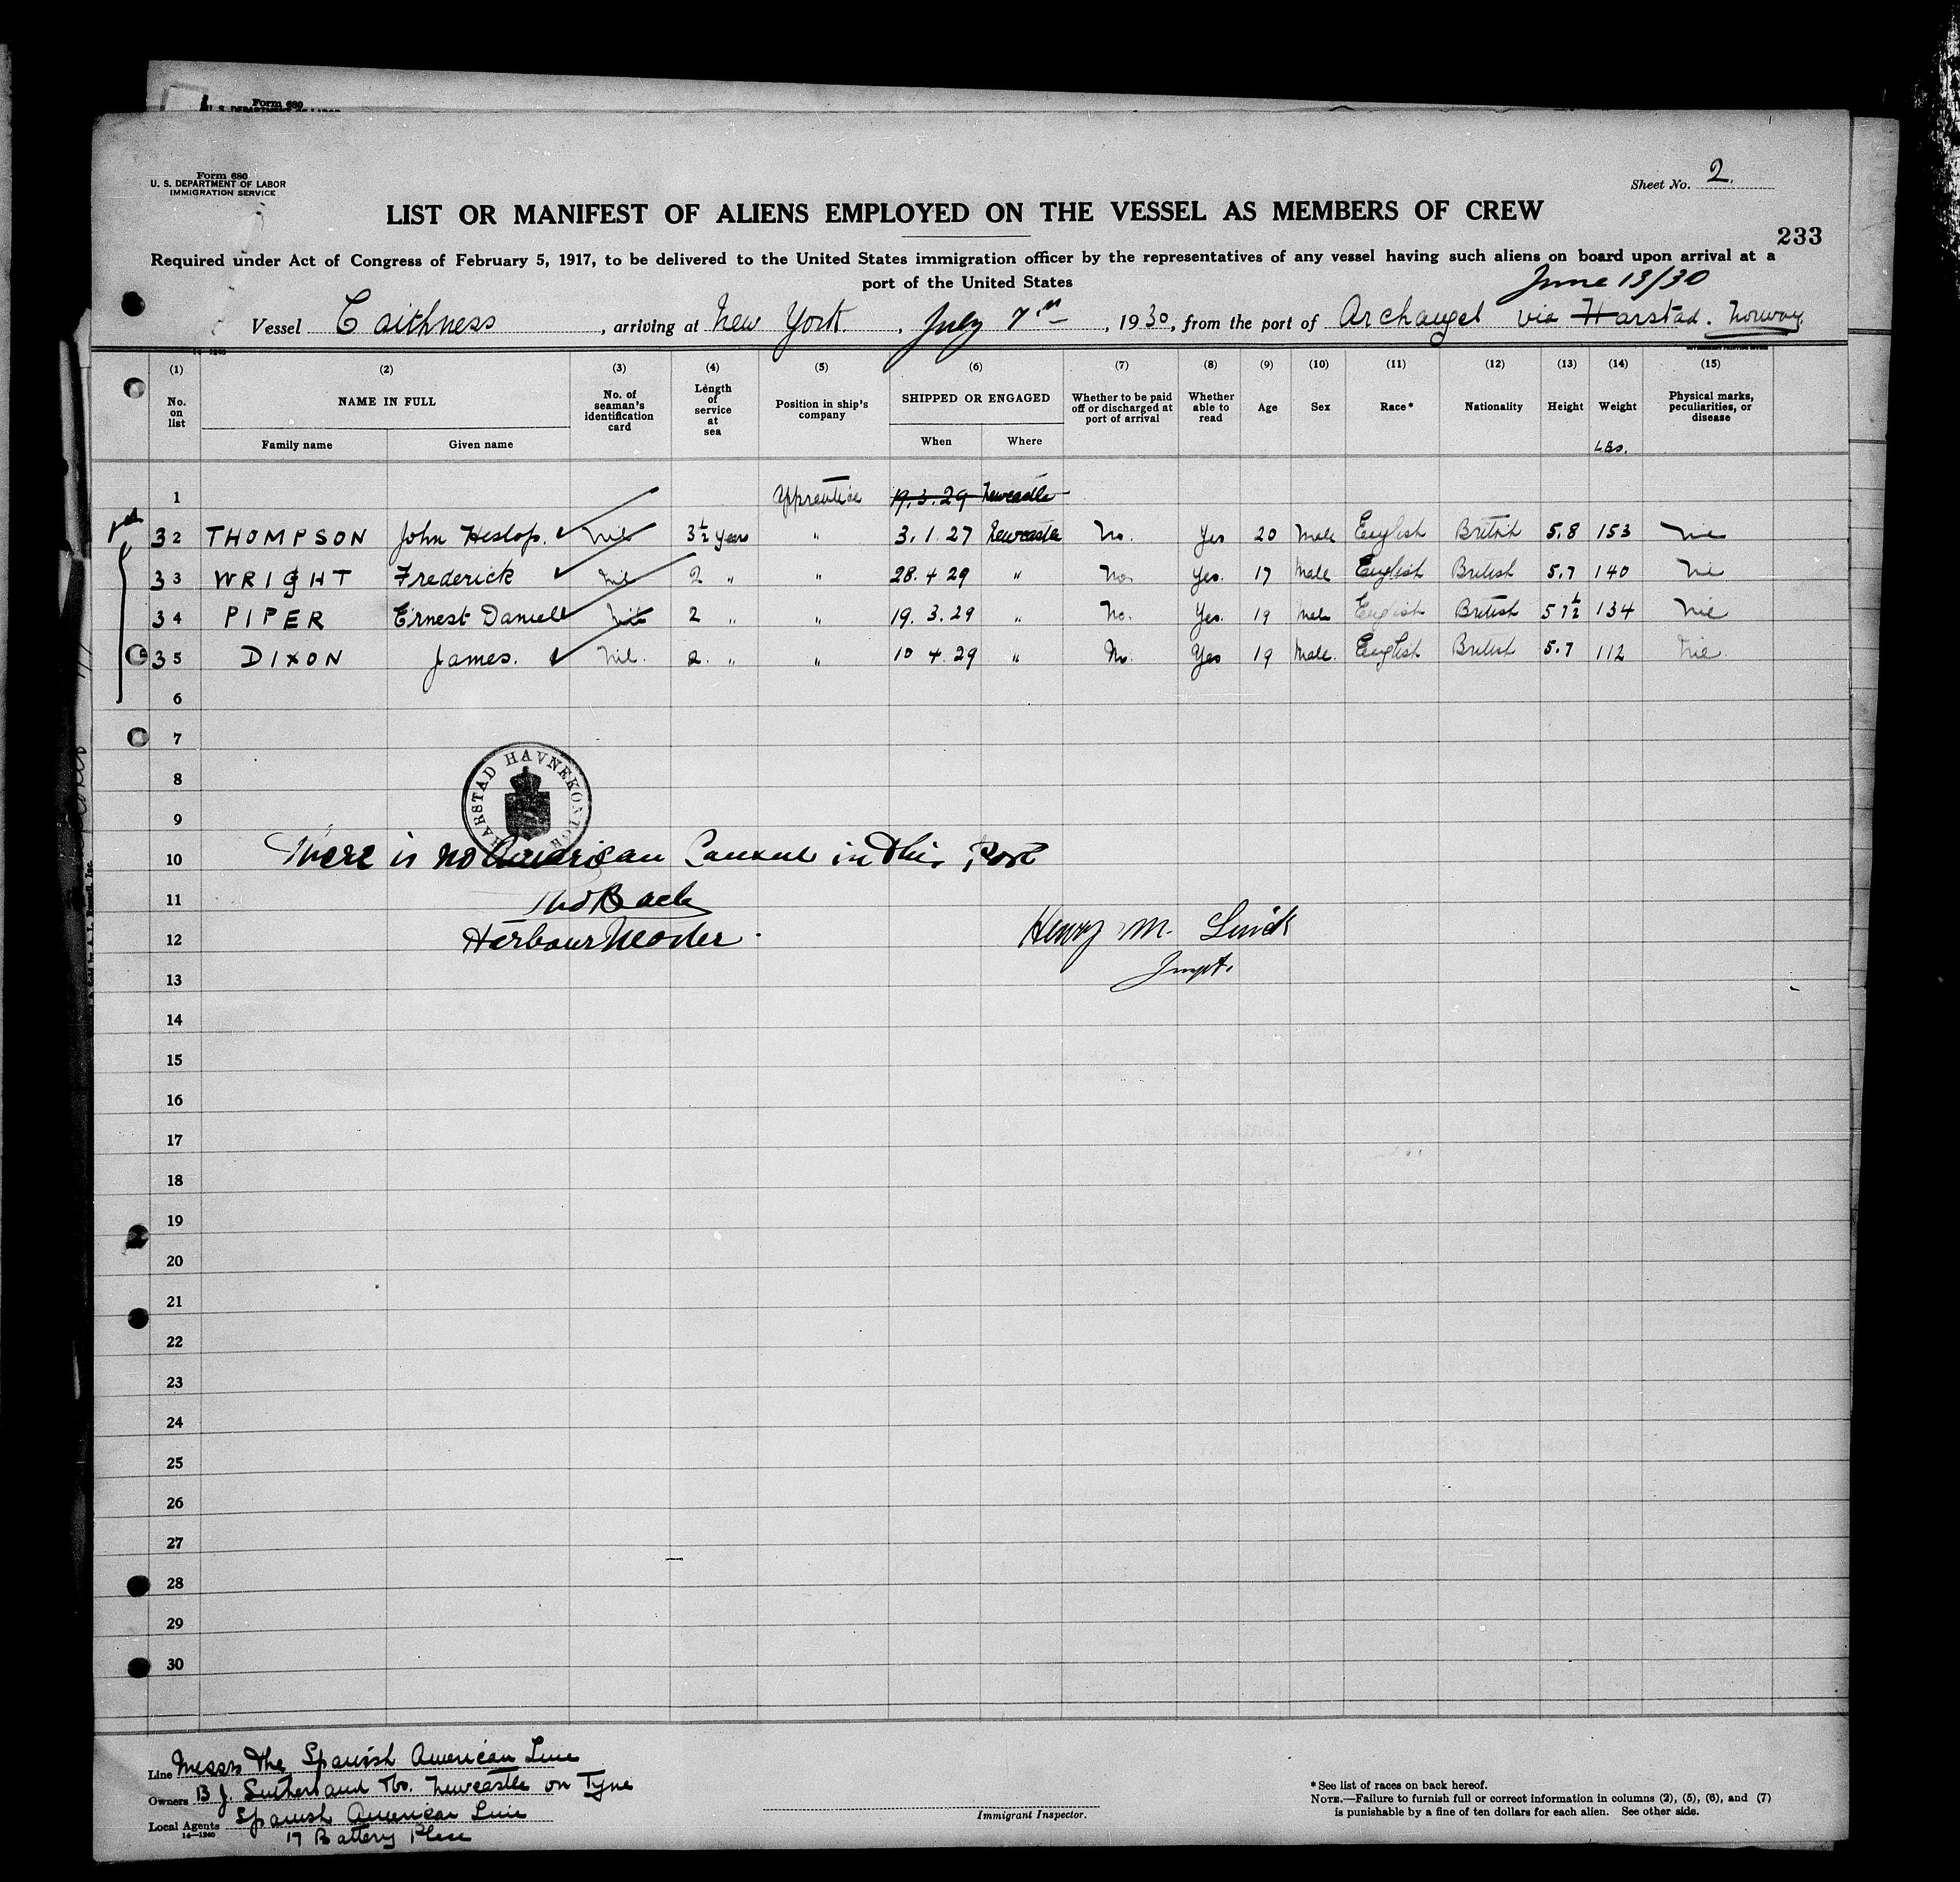 Form 680
U. S. DEPARTMENT OF LABOR
Form 680
U. S. DEPARTMENT OF LABOR
IMMIGRATION SERVICE
Sheet No. 2.
LIST OR MANIFEST OF ALIENS EMPLOYED ON THE VESSEL AS MEMBERS OF CREW
233
Required under Act of Congress of February 5, 1917, to be delivered to the United States immigration officer by the representatives of any vessel having such aliens on board upon arrival at a
port of the United States
June 13/30
Vessel Caithness, arriving at New York., July 7th, 1930, from the port of Archangel via Harstad. Norway.
(1) (2) (3) (4) (5) (6) (7) (8) (9) (10) (11) (12) (13) (14) (15)
No. on list NAME IN FULL Family name Given name No. of seaman's identification card Length of service at sea Position in ship's company SHIPPED OR ENGAGED When Where Whether to be paid off or discharged at port of arrival Whether able to read Age Sex Race* Nationality Height Weight Lbs. Physical marks, peculiarities, or disease
1 Apprentice 19.3.29 Newcastle
32 THOMPSON John Heslop. Nil 3½ years " 3.1.27 Newcastle No. Yes 20 Male English British 5.8 153 Nil
33 WRIGHT Frederick Nil 2 " " 28.4.29 " No. Yes. 17 Male English British 5.7 140 Nil
34 PIPER Ernest Daniel Nil 2 " " 19.3.29 " No. Yes. 19 Male English British 5 7½ 134 Nil
35 DIXON James. Nil. 2. " " 10 4.29 " No. Yes 19 Male. English British 5.7 112 Nil
6
7
8
9
HARSTAD HAVNEKONTOR
10 There is no American Consul in this Port
11
12 Harbour Master. Henry M.
13 Inspt.
14
15
16
17
18
19
20
21
22
23
24
25
26
27
28
29
30
Line Messrs The Spanish American Line
Owners B J. Sutherland & Co. Newcastle on Tyne
Local Agents Spanish American Line
14—1240
17 Battery Place
Immigrant Inspector.
*See list of races on back hereof.
NOTE.—Failure to furnish full or correct information in columns (2), (5), (6), and (7)
is punishable by a fine of ten dollars for each alien. See other side.